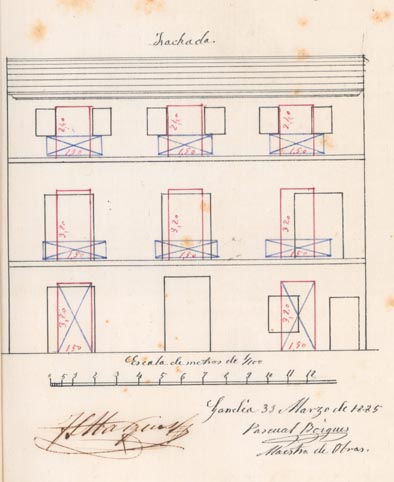 Fachada.
2,40 2,40 2,40
1,50 1,50 1,50
3,20 3,20 3,20
1,50 1,50 1,50
3,20 3,20
1,50 1,50
Escala de metros de 1/100
0 5 1 2 3 4 5 6 7 8 9 10 11 12
Gandía Marzo de 1885
Pascual
Maestro de Obras.